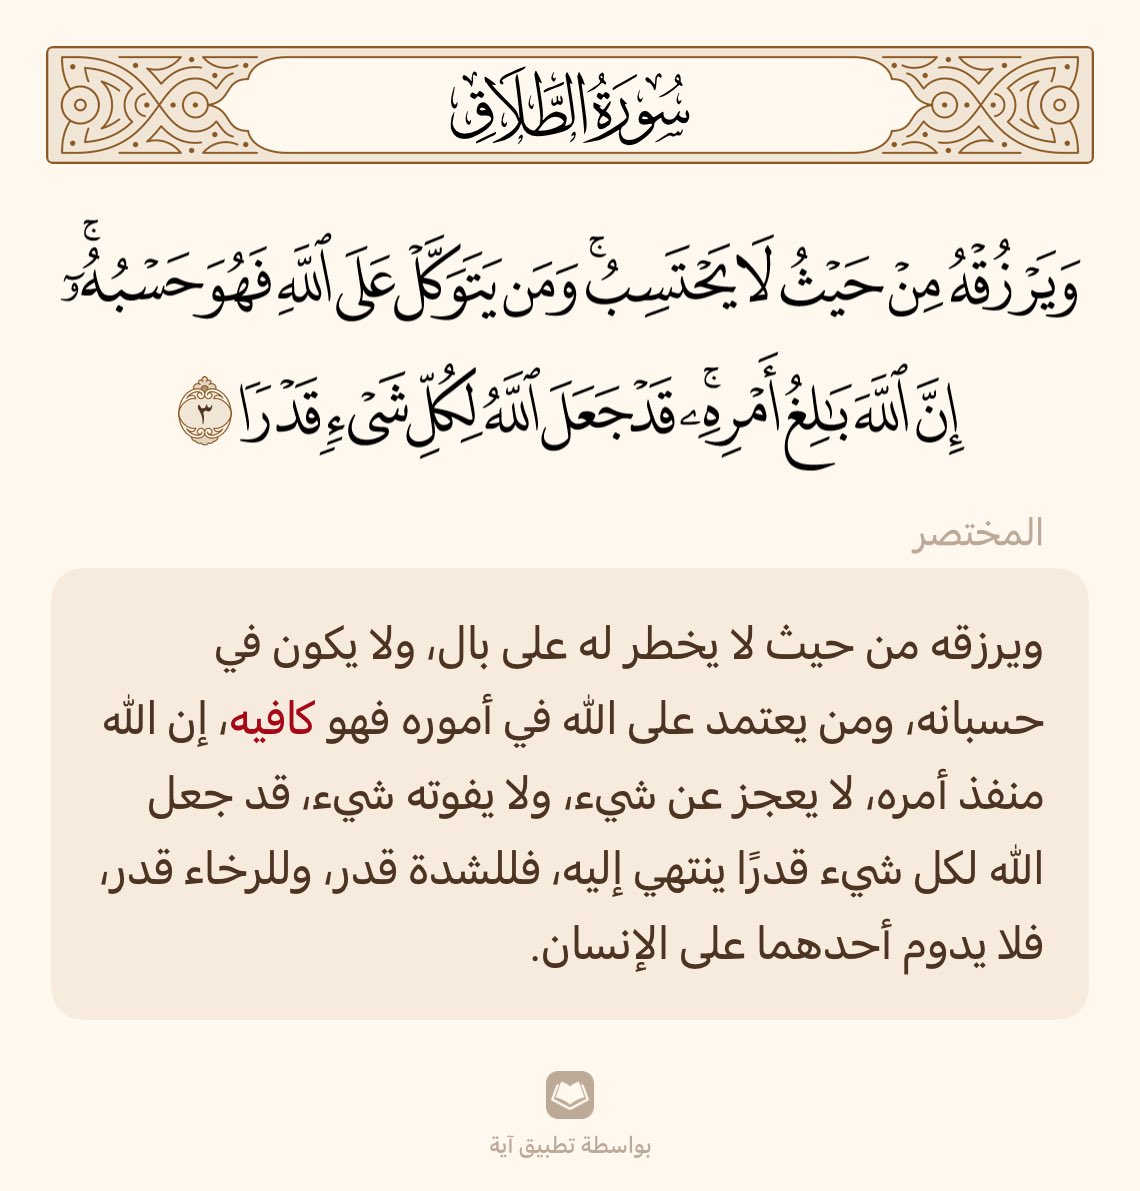 سُورَةُ الطَّلَاقِ
وَيَرْزُقْهُ مِنْ حَيْثُ لَا يَحْتَسِبُ ۚ وَمَن يَتَوَكَّلْ عَلَى ٱللَّهِ فَهُوَ حَسْبُهُۥٓ ۚ
إِنَّ ٱللَّهَ بَـٰلِغُ أَمْرِهِۦ ۚ قَدْ جَعَلَ ٱللَّهُ لِكُلِّ شَىْءٍ قَدْرًا ٣
المختصر
ويرزقه من حيث لا يخطر له على بال، ولا يكون في
حسبانه، ومن يعتمد على الله في أموره فهو كافيه، إن الله
منفذ أمره، لا يعجز عن شيء، ولا يفوته شيء، قد جعل
الله لكل شيء قدرًا ينتهي إليه، فللشدة قدر، وللرخاء قدر،
فلا يدوم أحدهما على الإنسان.
بواسطة تطبيق آية